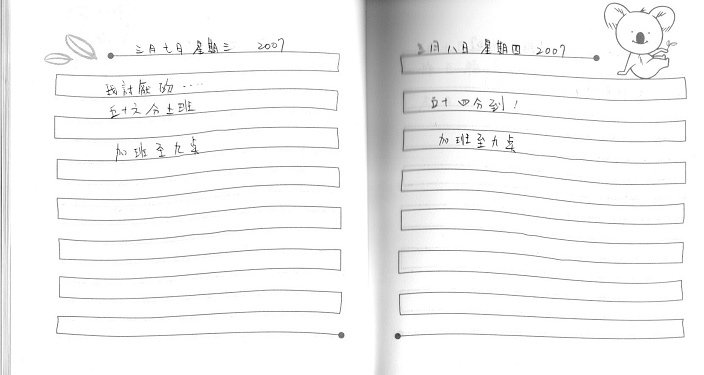 三月七日 星期三 2007
我討厭的....
五十六分上班
加班至九点
三月八日 星期四 2007
五十四分到!
加班至九点